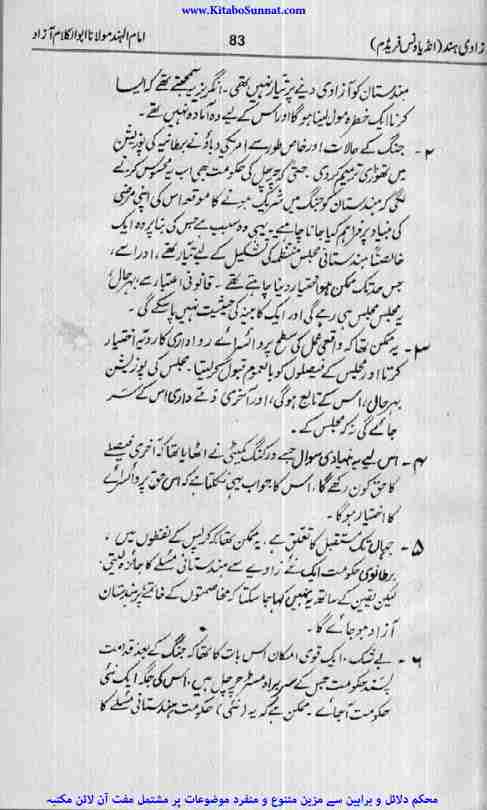 www.KitaboSunnat.com
زادی ہند (انڈیا ونس فریڈم)
83
امام الہند مولانا ابوالکلام آزاد
ہندستان کو آزادی دینے پر تیار نہیں تھی۔ انگریز یہ سمجھتے تھے کہ ایسا
کرنا ایک خطرہ مول لینا ہوگا اور اس کے لیے وہ آمادہ نہیں تھے۔
۲- جنگ کے حالات اور خاص طور سے امریکی دباؤ نے برطانیہ کی پوزیشن
میں تھوڑی ترمیم کر دی۔ حتیٰ کہ چرچل کی حکومت بھی اب یہ محسوس کرنے
لگی کہ ہندستان کو جنگ میں شریک ہونے کا موقعہ اس کی اپنی مرضی
کی بنیاد پر فراہم کیا جانا چاہیے۔ یہی وہ سبب ہے جس کی بنا پر وہ ایک
خالصتاً ہندستانی مجلس منتظمہ کی تشکیل کے لیے تیار تھے، اور اسے،
جس حد تک ممکن ہو اختیار دینا چاہتے تھے۔ قانونی اعتبار سے بہرحال
یہ مجلس مجلس ہی رہے گی اور ایک کابینہ کی حیثیت نہیں پا سکے گی۔
۳- یہ ممکن تھا کہ واقعی عمل کی سطح پر وائسرائے رواداری کا رویہ اختیار
کرتا اور مجلس کے فیصلوں کو بالعموم قبول کر لیتا۔ مجلس کی پوزیشن
بہرحال، اس کے تابع ہوگی، اور آخری ذمے داری اس کے سر
جائے گی نہ کہ مجلس کے۔
۴- اس لیے یہ بنیادی سوال جسے ورکنگ کمیٹی نے اٹھایا تھا کہ آخری فیصلے
کا حق کون رکھے گا، اس کا جواب یہی ہو سکتا ہے کہ اس حق پر وائسرائے
کا اختیار ہوگا۔
۵- جہاں تک مستقبل کا تعلق ہے، یہ ممکن تھا کہ کرپس کے لفظوں میں،
برطانوی حکومت ایک نئے زاویے سے ہندستانی مسئلے کا جائزہ لیتی،
لیکن یقین کے ساتھ یہ نہیں کہا جا سکتا کہ مخاصمتوں کے خاتمے پر ہندستان
آزاد ہو جائے گا۔
۶- بے شک، ایک قوی امکان اس بات کا تھا کہ جنگ کے بعد قدامت
پسند حکومت جس کے سربراہ مسٹر چرچل ہیں، اس کی جگہ ایک نئی
حکومت آ جائے۔ ممکن ہے کہ یہ (نئی) حکومت ہندستانی مسئلے کا
محکم دلائل و براہین سے مزین متنوع و منفرد موضوعات پر مشتمل مفت آن لائن مکتبہ